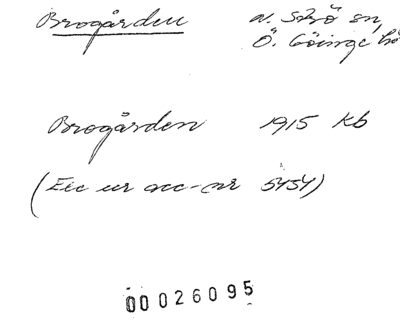 Brogården N. Strö sn,
Ö. Göinge hd
Brogården 1915 Kb
(Exc ur acc-nr 5454)
00026095